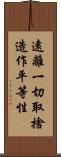 遠離一切取捨
造作平等性